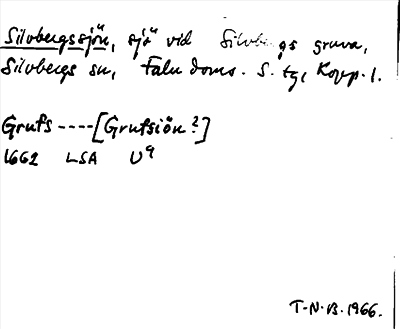 Silvbergssjön, sjö vid Silvbergs gruva,
Silvbergs sn, Falu doms. S. tg, Kopp. l.
Grufs ----[Grufsiön?]
1662 LSA U9
T.N.B. 1966.